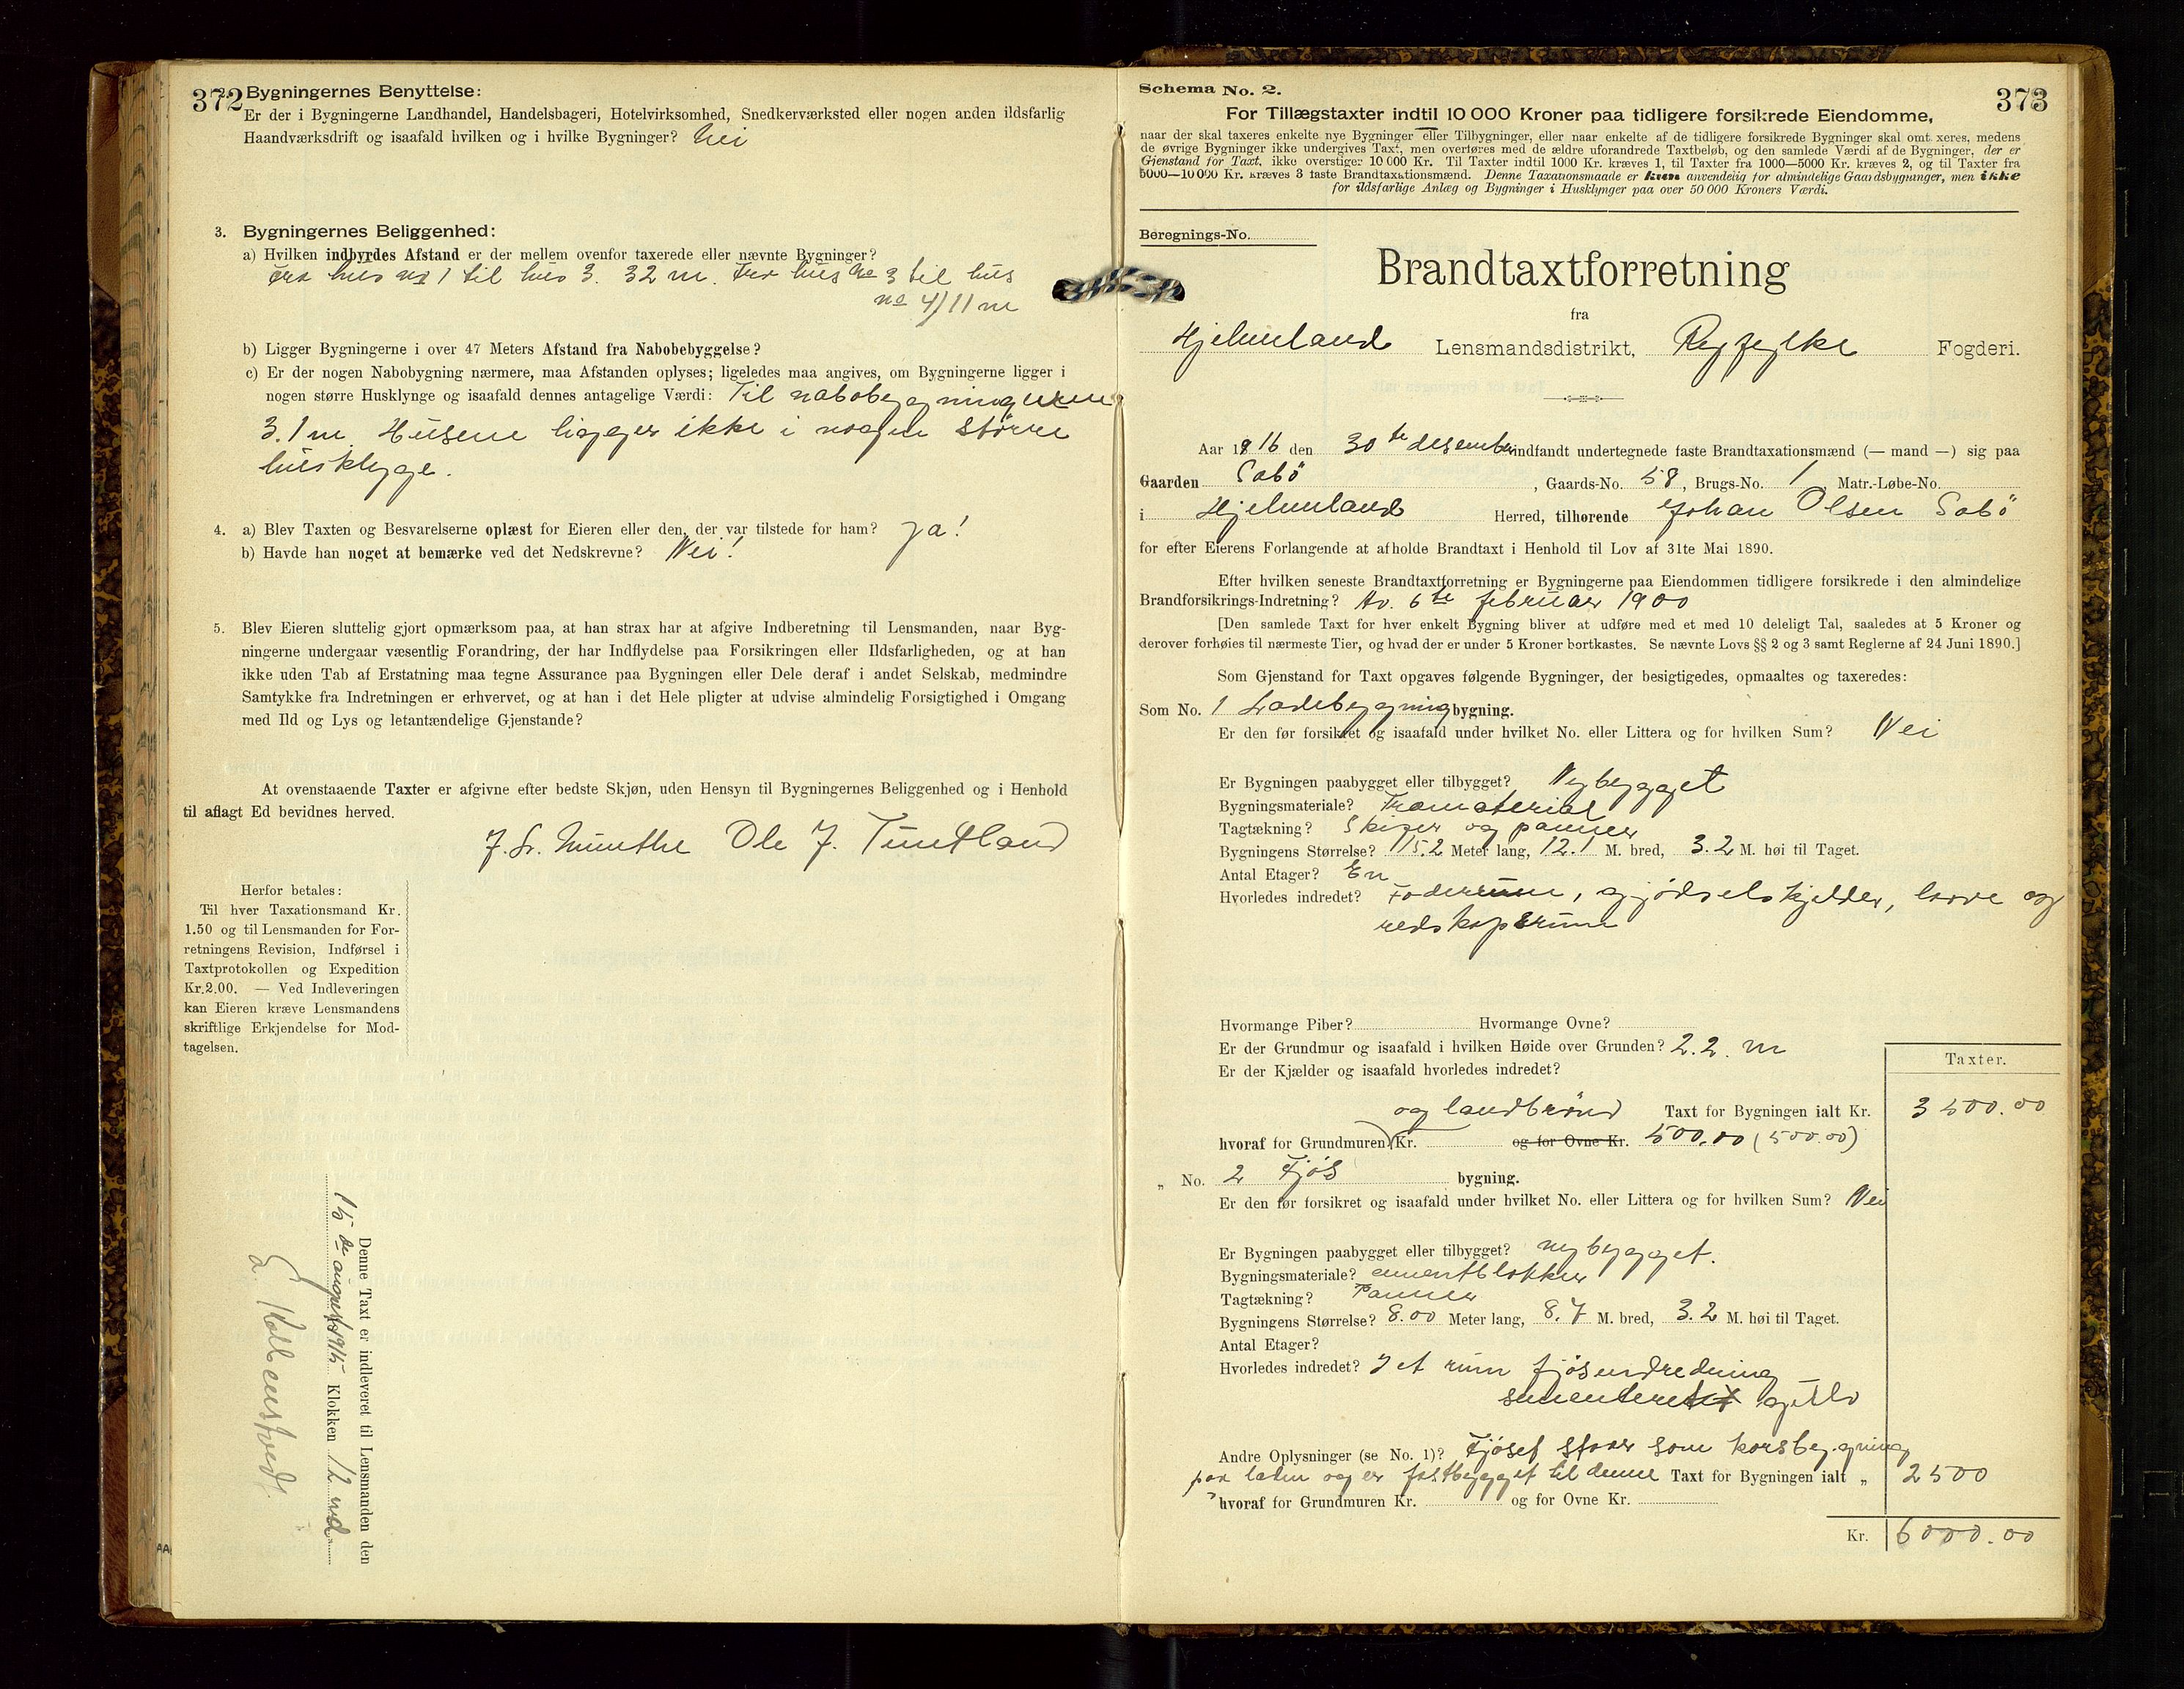 372
2. Bygningernes Benyttelse:
Er der i Bygningerne Landhandel, Handelsbageri, Hotelvirksomhed, Snedkerværksted eller nogen anden ildsfarlig
Haandværksdrift og isaafald hvilken og i hvilke Bygninger? Nei
3. Bygningernes Beliggenhed:
a) Hvilken indbyrdes Afstand er der mellem ovenfor taxerede eller nævnte Bygninger?
Fra hus no 1 til hus 3. 32 m. Fra hus no 3 til hus
no 4) 11 m
b) Ligger Bygningerne i over 47 Meters Afstand fra Nabobebyggelse?
c) Er der nogen Nabobygning nærmere, maa Afstanden oplyses; ligeledes maa angives, om Bygningerne ligger i
nogen større Husklynge og isaafald dennes antagelige Værdi: Til nabobygningerne
3.1 m Husene ligger ikke i nogen større
husklyge.
4. a) Blev Taxten og Besvarelserne oplæst for Eieren eller den, der var tilstede for ham? Ja!
b) Havde han noget at bemærke ved det Nedskrevne? Nei!
5. Blev Eieren sluttelig gjort opmærksom paa, at han strax har at afgive Indberetning til Lensmanden, naar Byg-
ningerne undergaar væsentlig Forandring, der har Indflydelse paa Forsikringen eller Ildsfarligheden, og at han
ikke uden Tab af Erstatning maa tegne Assurance paa Bygningen eller Dele deraf i andet Selskab, medmindre
Samtykke fra Indretningen er erhvervet, og at han i det Hele pligter at udvise almindelig Forsigtighed i Omgang
med Ild og Lys og letantændelige Gjenstande?
At ovenstaaende Taxter er afgivne efter bedste Skjøn, uden Hensyn til Bygningernes Beliggenhed og i Henhold
til aflagt Ed bevidnes herved.
Munthe Ole J. Tuntland
Herfor betales:
Til hver Taxationsmand Kr.
1.50 og til Lensmanden for For-
retningens Revision, Indførsel i
Taxtprotokollen og Expedition
Kr.2.00. — Ved Indleveringen
kan Eieren kræve Lensmandens
skriftlige Erkjendelse for Mod-
tagelsen.
Denne Taxt er indleveret til Lensmanden den
15 de august 1915 Klokken 12 md
373
Schema No. 2.
For Tillægstaxter indtil 10 000 Kroner paa tidligere forsikrede Eiendomme,
naar der skal taxeres enkelte nye Bygninger eller Tilbygninger, eller naar enkelte af de tidligere forsikrede Bygninger skal omt xeres, medens
de øvrige Bygninger ikke undergives Taxt, men overføres med de ældre uforandrede Taxtbeløb, og den samlede Værdi af de Bygninger, der er
Gjenstand for Taxt, ikke overstiger 10 000 Kr. Til Taxter indtil 1000 Kr. kræves 1, til Taxter fra 1000—5000 Kr. kræves 2, og til Taxter fra
5000—10 000 Kr. kræves 3 faste Brandtaxationsmænd. Denne Taxationsmaade er kun anvendelig for almindelige Gaardsbygninger, men ikke
for ildsfarlige Anlæg og Bygninger i Husklynger paa over 50 000 Kroners Værdi.
Beregnings-No.
Brandtaxtforretning
fra
Hjelmeland Lensmandsdistrikt, Ryfylke Fogderi.
Aar 1916 den 30te desember indfandt undertegnede faste Brandtaxationsmænd (— mand —) sig paa
Gaarden Sabö, Gaards-No. 58, Brugs-No. 1, Matr.-Løbe-No.
i Hjelmeland Herred, tilhørende Johan Olsen Sabö
for efter Eierens Forlangende at afholde Brandtaxt i Henhold til Lov af 31te Mai 1890.
Efter hvilken seneste Brandtaxtforretning er Bygningerne paa Eiendommen tidligere forsikrede i den almindelige
Brandforsikrings-Indretning? Av. 6te februar 1900
[Den samlede Taxt for hver enkelt Bygning bliver at udføre med et med 10 deleligt Tal, saaledes at 5 Kroner og
derover forhøies til nærmeste Tier, og hvad der er under 5 Kroner bortkastes. Se nævnte Lovs §§ 2 og 3 samt Reglerne af 24 Juni 1890.]
Som Gjenstand for Taxt opgaves følgende Bygninger, der besigtigedes, opmaaltes og taxeredes:
Som No. 1 Ladebygning bygning.
Er den før forsikret og isaafald under hvilket No. eller Littera og for hvilken Sum? Nei
Er Bygningen paabygget eller tilbygget? Nybygget
Bygningsmateriale? Træmaterial
Tagtækning? Skifer og panner
Bygningens Størrelse? 15.2 Meter lang, 12.1 M. bred, 3.2 M. høi til Taget.
Antal Etager? En
Hvorledes indredet? Foderrum, gjödselskjelder, love og
redskapsrum
Hvormange Piber? Hvormange Ovne?
Er der Grundmur og isaafald i hvilken Høide over Grunden? 2.2. m
Er der Kjælder og isaafald hvorledes indredet?
Taxter.
og landbrönd Taxt for Bygningen ialt Kr. 3500.00
hvoraf for Grundmuren) Kr. og for Ovne Kr. 500.00 (500.00)
„ No. 2 Fjös bygning.
Er den før forsikret og isaafald under hvilket No. eller Littera og for hvilken Sum? Nei
Er Bygningen paabygget eller tilbygget? nybygget.
Bygningsmateriale? sementblokker
Tagtækning? Panner
Bygningens Størrelse? 8.00 Meter lang, 8.7 M. bred, 3.2 M. høi til Taget.
Antal Etager?
Hvorledes indredet? I et rum fjösindredning
sementeret
Andre Oplysninger (se No. 1)? Fjöset staar som korsbygning
paa laden og er fastbygget til denne Taxt for Bygningen ialt „ 2500
hvoraf for Grundmuren Kr. og for Ovne Kr.
Kr. 6000.00